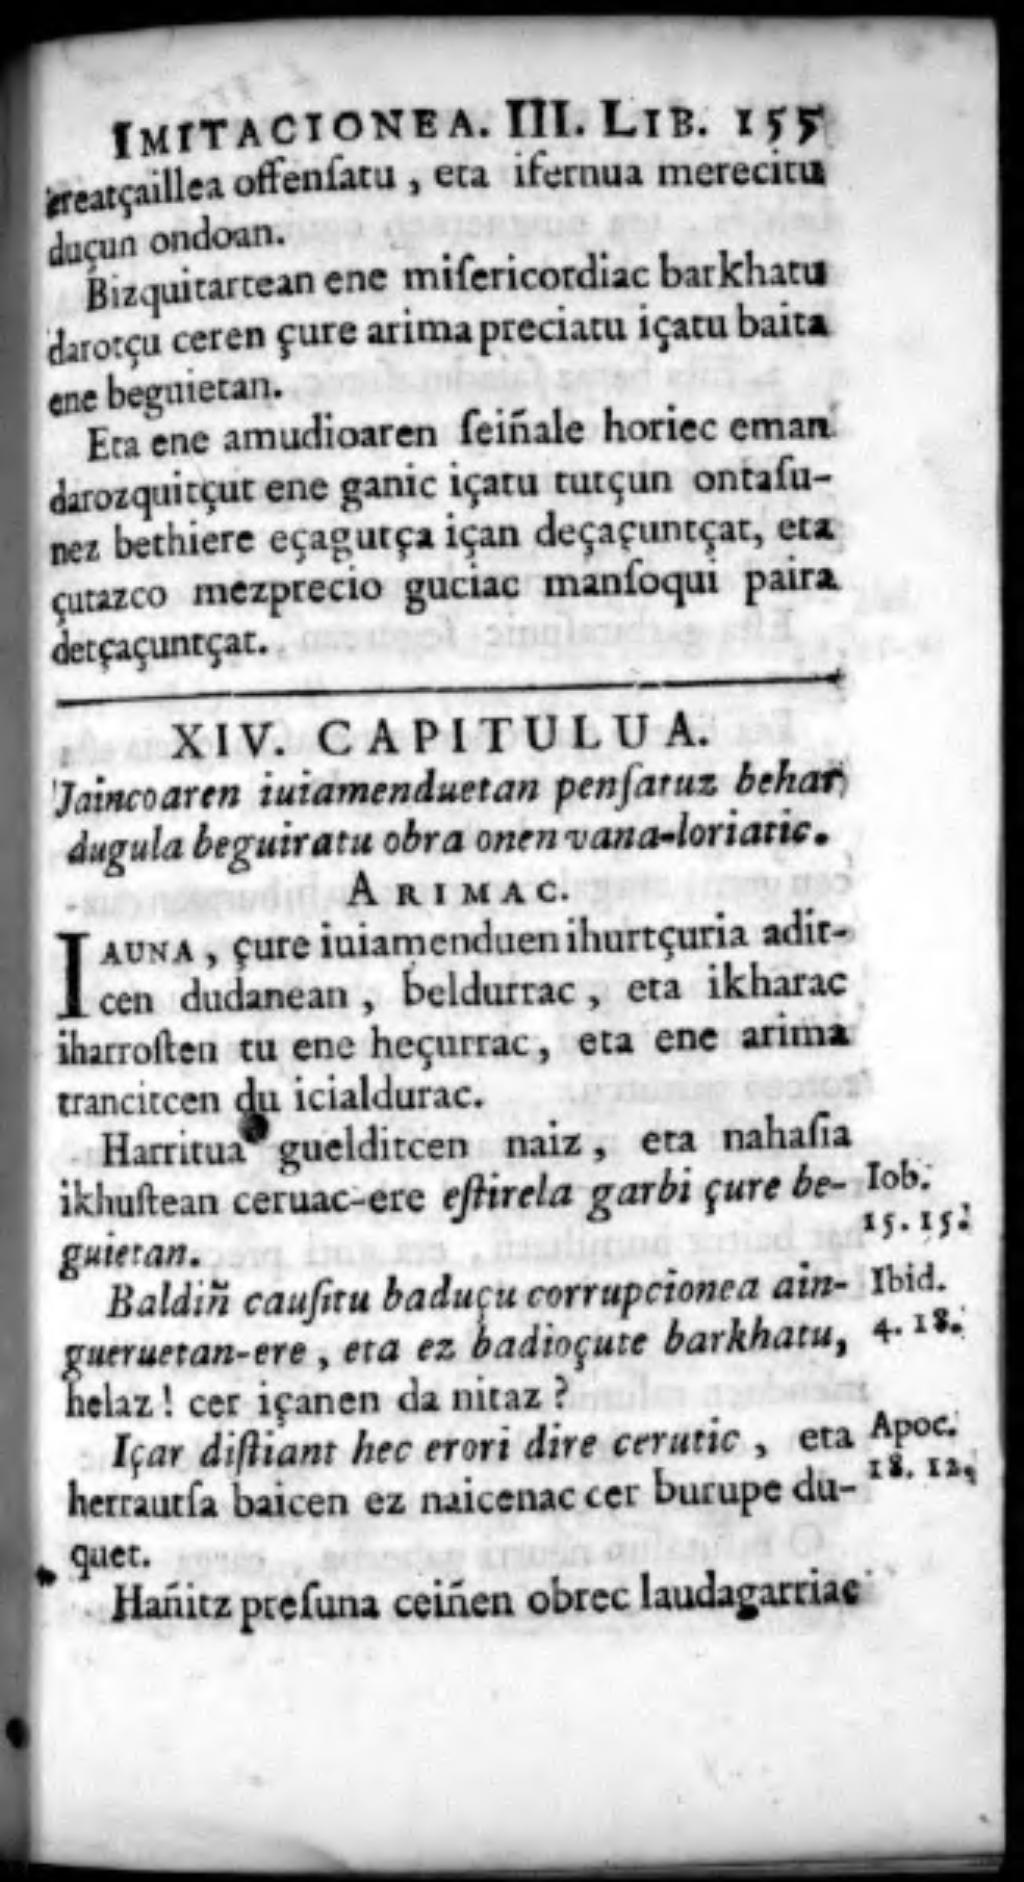 IMITACIONEA. III. LIB. 155
creatçaillea offenſatu, eta ifernua merecitu
duçun ondoan.
Bizquitartean ene miſericordiac barkhatu
darotçu ceren çure arima preciatu içatu baita
ene beguietan.
Eta ene amudioaren ſeiñale horiec eman
darozquitçut ene ganic içatu tutçun ontaſu-
nez bethiere eçagutça içan deçaçuntçat, eta
çutazco mezprecio guciac manſoqui paira
detçaçuntçat.
XIV. CAPITULUA.
Jaincoaren iuiamenduetan penſatuz behar
dugula beguiratu obra onen vana-loriatic.
ARIMAC.
IAUNA, çure iuiamenduen ihurtçuria adit-
cen dudanean, beldurrac, eta ikharac
iharroſten tu ene heçurrac, eta ene arima
trancitcen du icialdurac.
Harritua guelditcen naiz, eta nahaſia
ikhuſtean ceruac-ere eſtirela garbi çure be-
guietan.
Iob.
15. 15.
Baldiñ cauſitu baduçu corrupcionea ain-
gueruetan-ere, eta ez badioçute barkhatu,
helaz! cer içanen da nitaz?
Ibid.
4. 18.
Içar diſtiant hec erori dire cerutic, eta
herrautſa baicen ez naicenac cer burupe du-
quet.
Apoc.
18. 12.
Hañitz preſuna ceiñen obrec laudagarriac